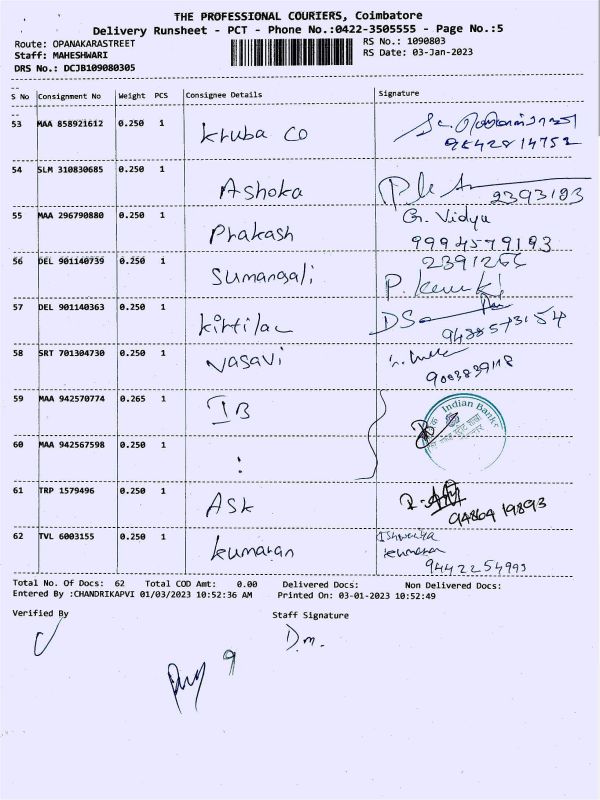 THE PROFESSIONAL COURIERS, Coimbatore
Delivery Runsheet - PCT - Phone No.:0422-3505555 - Page No.:5
Route: OPANAKARASTREET
Staff: MAHESHWARI
DRS No.: DCJB109080305
RS No.: 1090803
RS Date: 03-Jan-2023
S No Consignment No Weight PCS Consignee Details Signature
53 MAA 858921612 0.250 1 kruba co
9842814752
54 SLM 310830685 0.250 1 Ashoka 2393193
55 MAA 296790880 0.250 1 Prakash G. Vidya
9994579193
56 DEL 901140739 0.250 1 Sumangali
57 DEL 901140363 0.250 1
58 SRT 701304730 0.250 1 Vasavi
59 MAA 942570774 0.265 1 IB Indian Bank
60 MAA 942567598 0.250 1 :
61 TRP 1579496 0.250 1 ASK
94864 19893
62 TVL 6003155 0.250 1 kumaran Ishwarya
kumaran
9442254993
Total No. Of Docs: 62 Total COD Amt: 0.00 Delivered Docs: Non Delivered Docs:
Entered By :CHANDRIKAPVI 01/03/2023 10:52:36 AM Printed On: 03-01-2023 10:52:49
Verified By Staff Signature
D.m.
9